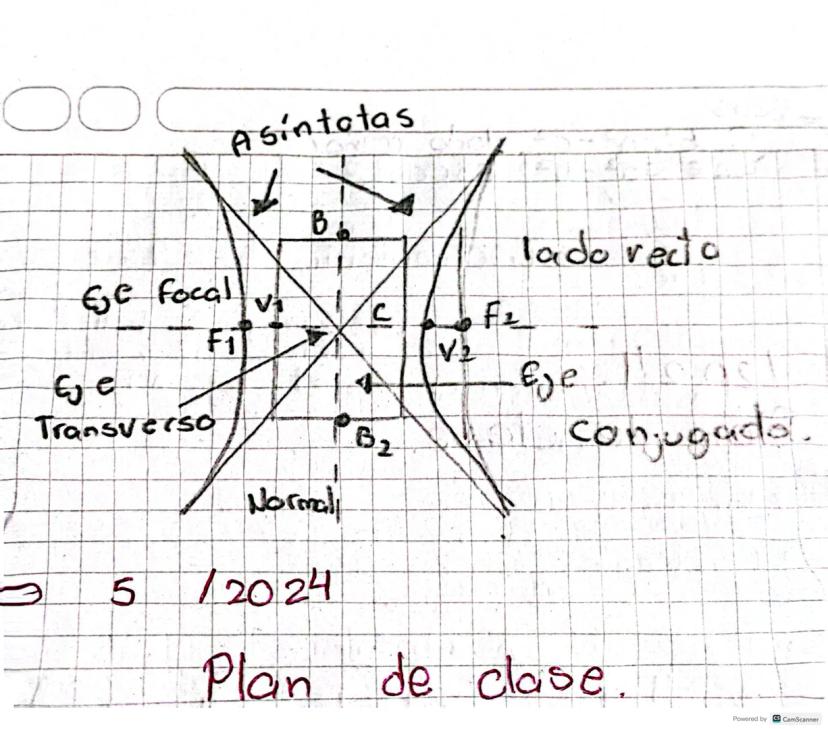 Asíntotas
B
lado recto
Eje focal
V1
C
F2
F1
V2
Eje
Transverso
Eje
conjugado.
B2
Normal
5 /2024
Plan de clase.
Powered by CS CamScanner